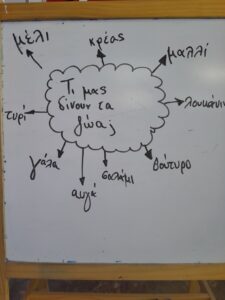 μέλι
κρέας
μαλλί
Τι μας
δίνουν τα
ζώα;
τυρί
λουκάνικ
γάλα
αυγά
σαλάμι
βούτυρο